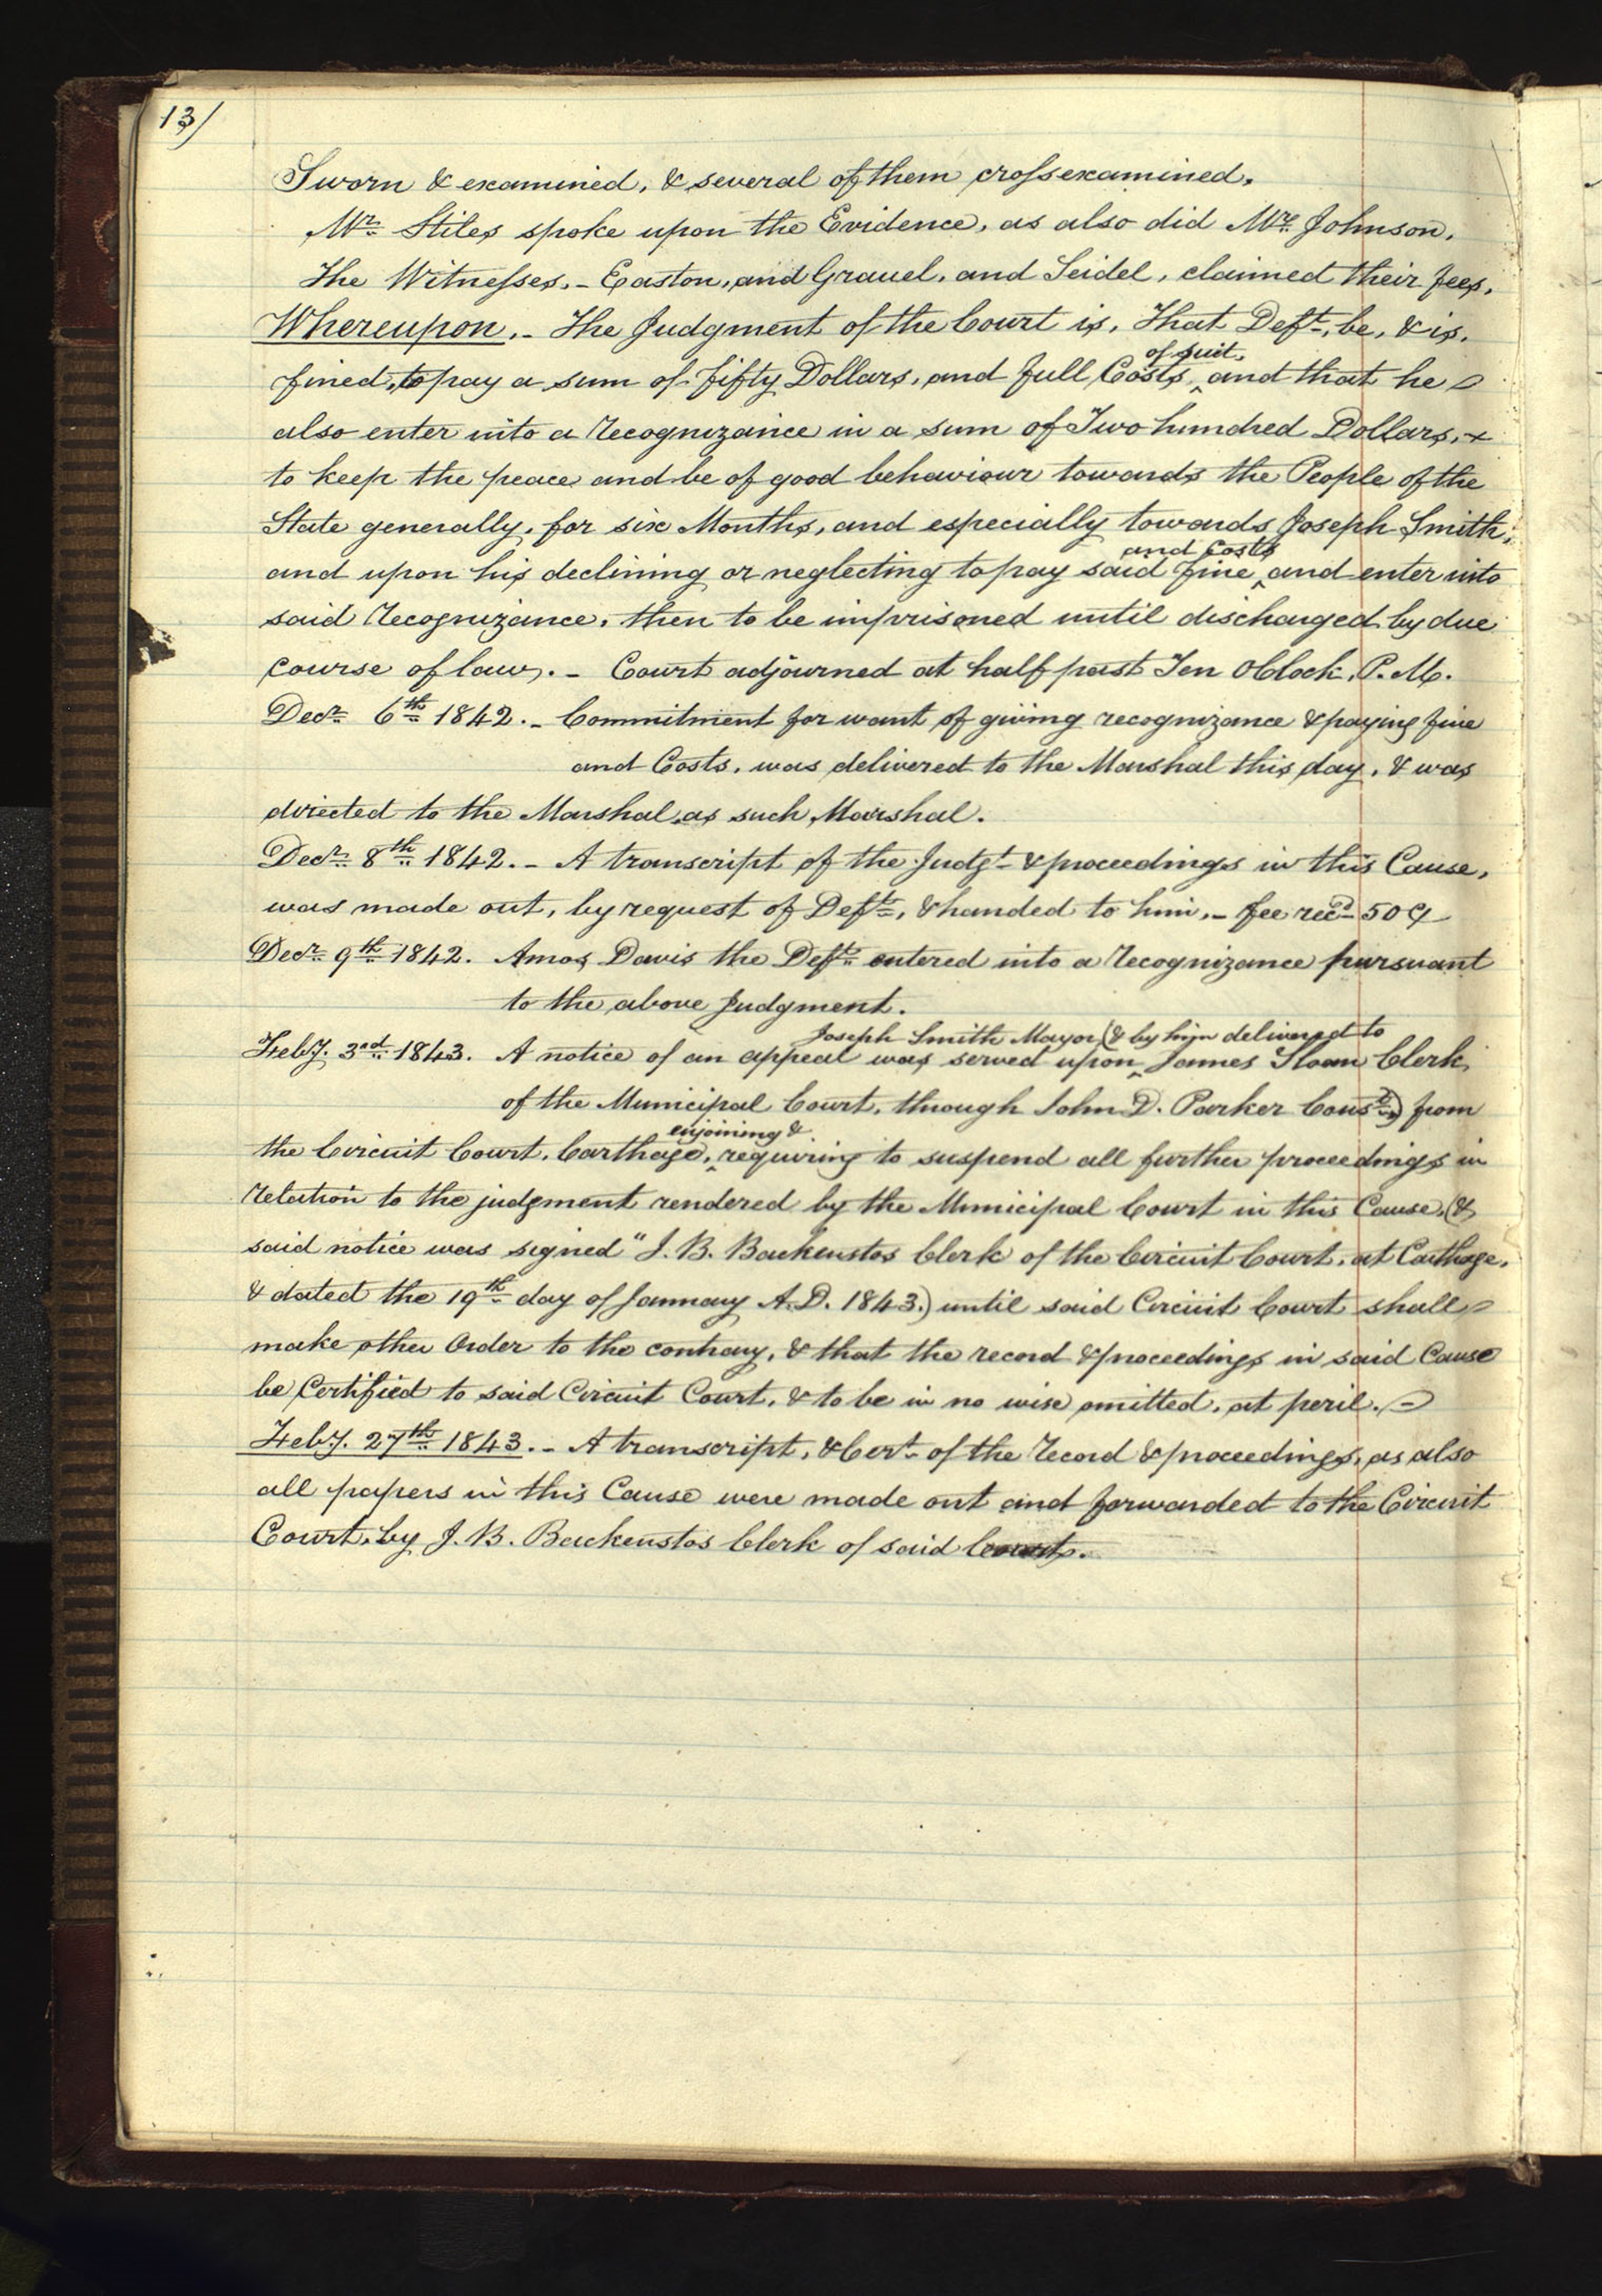 13/
Sworn & examined, & several of them crossexamined.
Mr. Stiles spoke upon the Evidence, as also did Mr. Johnson.
The Witnesses.- Easton, and Grauel, and Seidel, claimed their fees.
Whereupon.- The Judgment of the Court is, That Deft., be, & is,
of suit,
fined, to pay a sum of fifty Dollars, and full Costs ‸ and that he
also enter into a Recognizance in a sum of Two hundred Dollars,
to keep the peace and be of good behaviour towards the People of the
State generally, for six Months, and especially towards Joseph Smith,
and Costs
and upon his declining or neglecting to pay said fine ‸ and enter into
said Recognizance, then to be imprisoned until discharged by due
course of law. - Court adjourned at half past Ten OClock, P.M.
Decr. 6th. 1842. - Commitment for want of giving recognizance & paying fine
and Costs, was delivered to the Marshal this day, & was
directed to the Marshal, as such, Marshal.
Decr. 8th. 1842. - A transcript of the Judgt. & proceedings in this Cause,
was made out, by request of Deft., & handed to him,- fee recd. 50 ¢
Decr. 9th. 1842. Amos Davis the Deft. entered into a Recognizance pursuant
to the above Judgment.
Joseph Smith Mayor, (& by him delivered to
Feby. 3rd. 1843. A notice of an appeal was served upon ‸ James Sloan Clerk,
of the Municipal Court, through John D. Parker Const.) from
enjoining &
the Circuit Court, Carthage, ‸ requiring to suspend all further proceedings in
relation to the judgment rendered by the Municipal Court in this Cause, (&
said notice was signed "J. B. Backenstos Clerk of the Circuit Court, at Carthage,
& dated the 19th. day of January A.D. 1843.) until said Circuit Court shall
make other Order to the contrary, & that the record & proceedings in said Cause
be Certified to said Circuit Court, & to be in no wise omitted, at peril. -
Feby. 27th. 1843. - A transcript, & Cert. of the Record & proceedings, as also
all papers in this Cause were made out and forwarded to the Circuit
Court, by J. B. Backenstos Clerk of said Court.